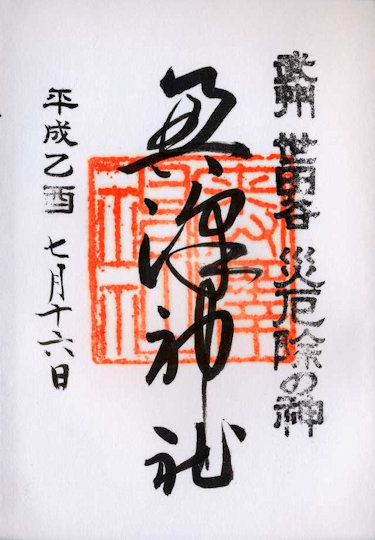 武州 世田谷 災厄除の神
奥澤神社
平成乙酉 七月十六日